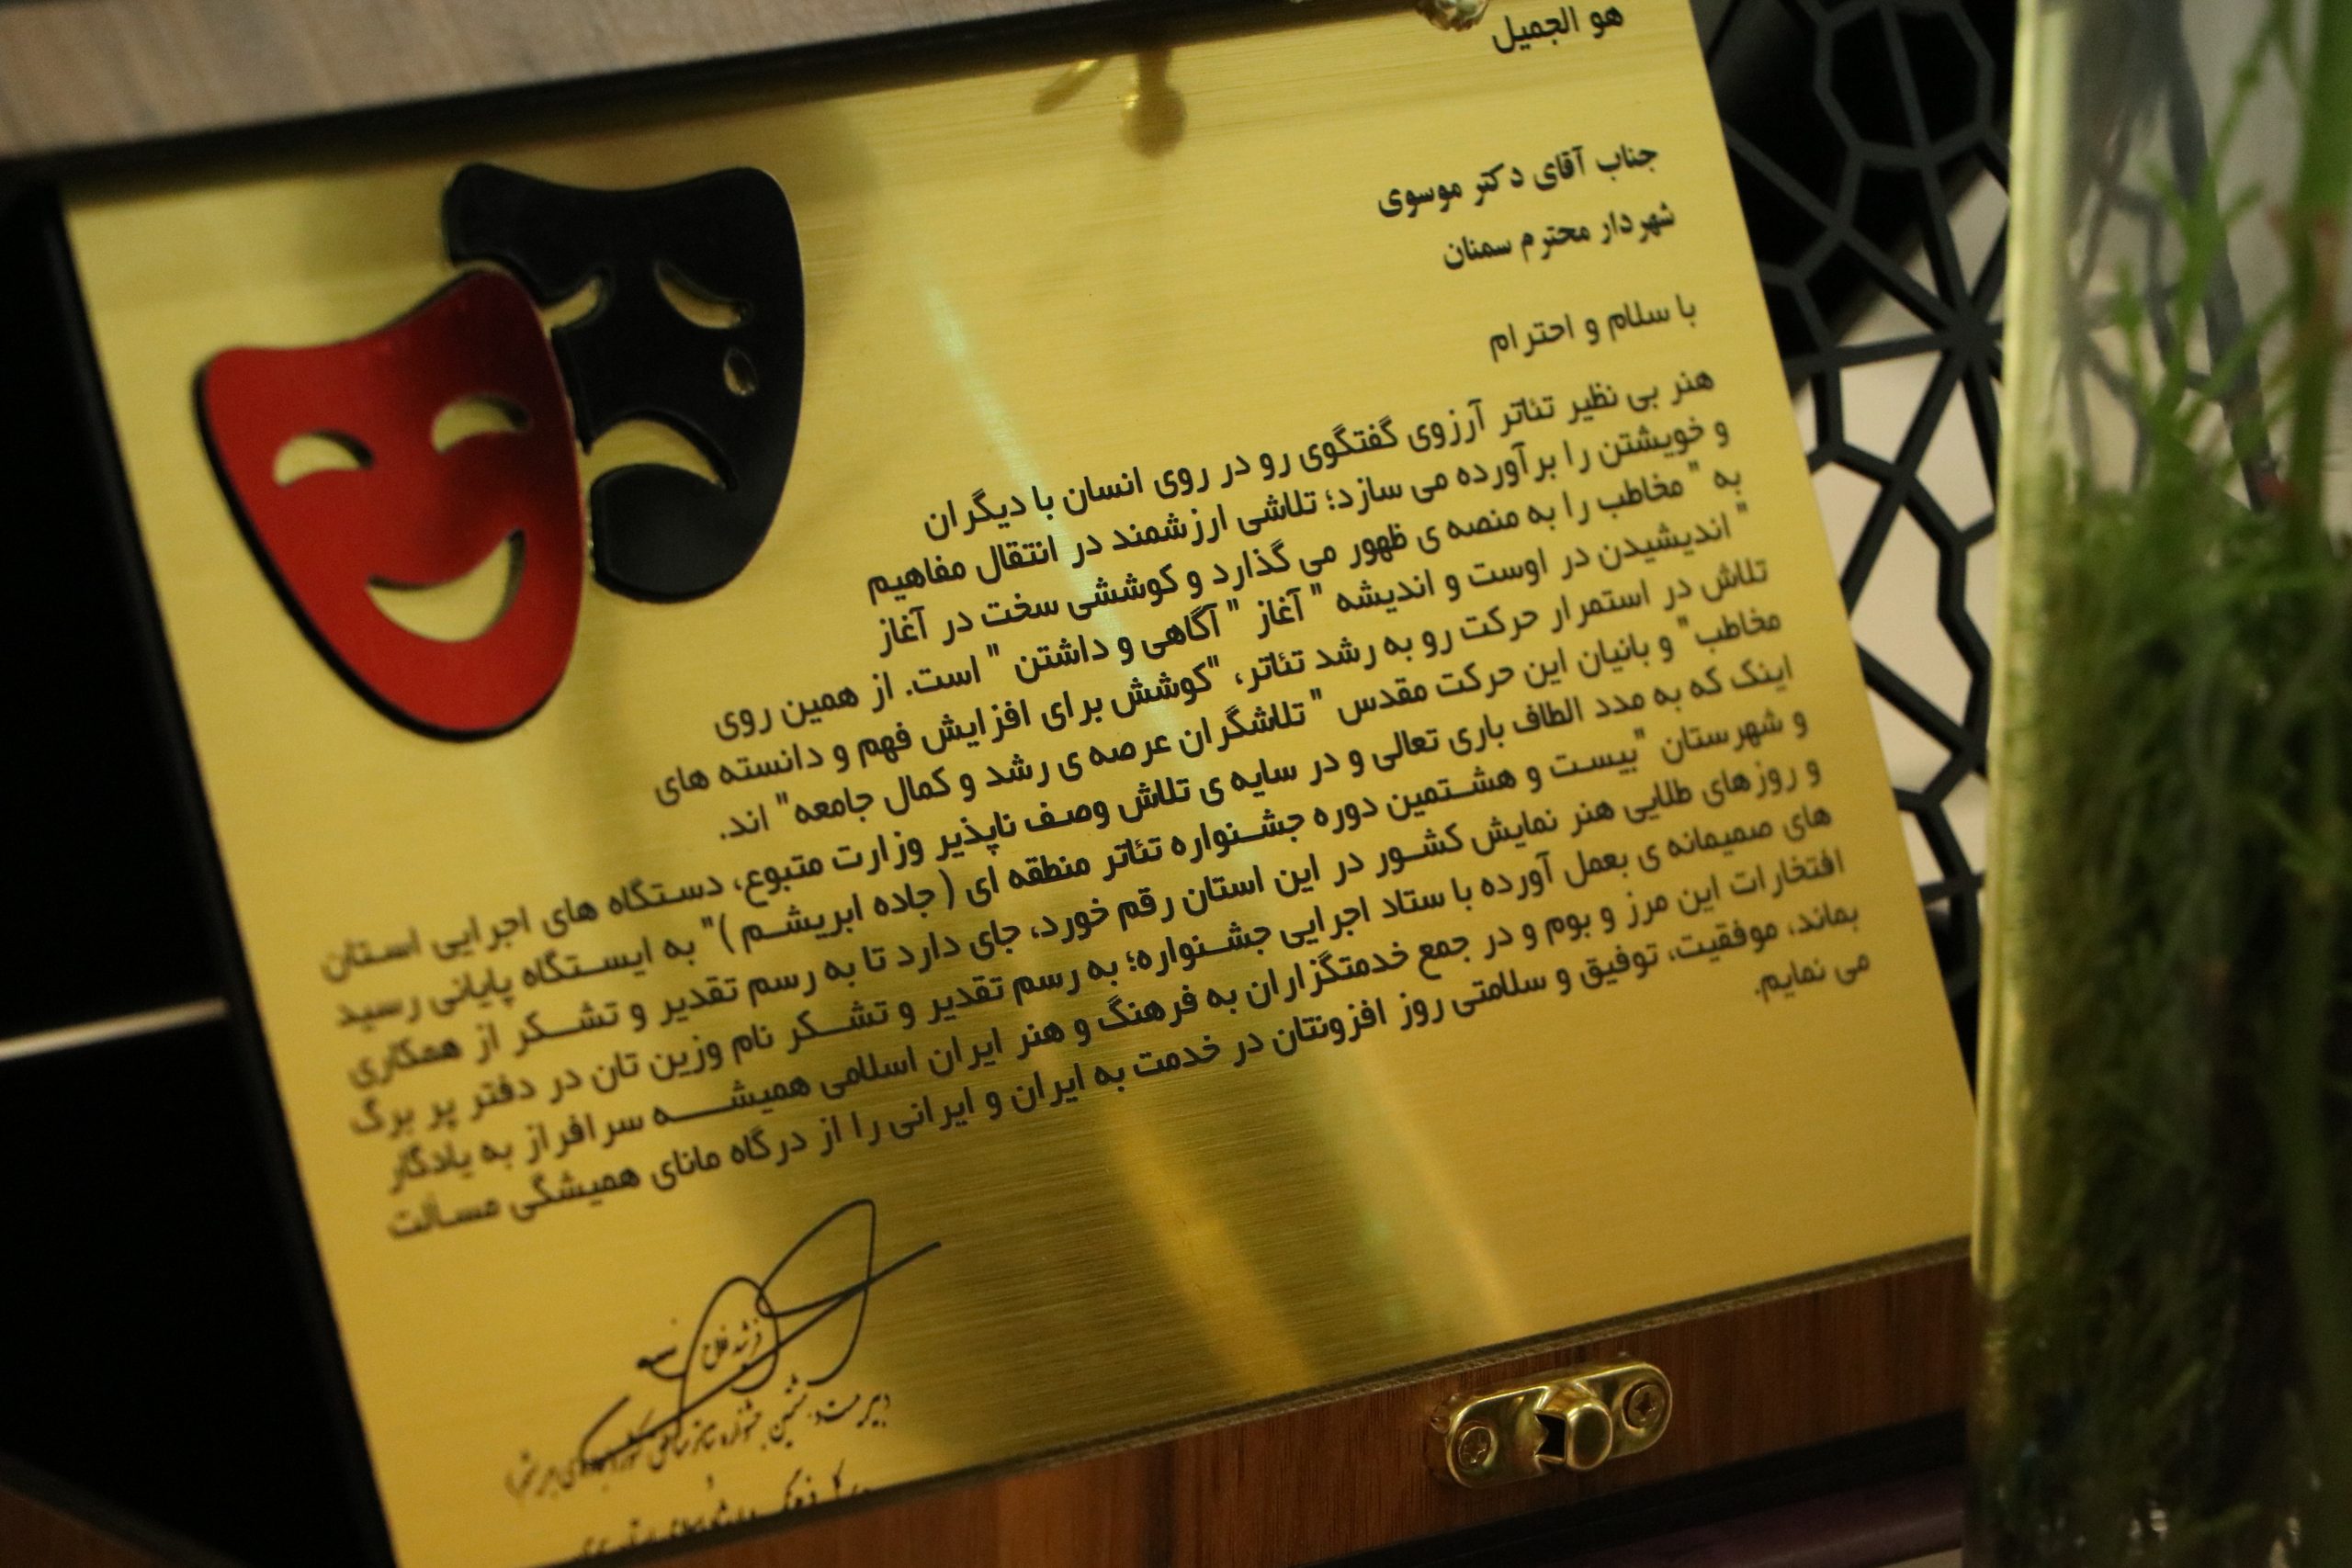 هو الجمیل
جناب آقای دکتر موسوی
شهردار محترم سمنان
با سلام و احترام
هنر بی نظیر تئاتر آرزوی گفتگوی رو در روی انسان با دیگران
و خویشتن را برآورده می سازد؛ تلاشی ارزشمند در انتقال مفاهیم
به " مخاطب را به منصه ی ظهور می گذارد و کوششی سخت در آغاز
" اندیشیدن در اوست و اندیشه " آغاز " آگاهی و داشتن " است. از همین روی
تلاش در استمرار حرکت رو به رشد تئاتر، "کوشش برای افزایش فهم و دانسته های
مخاطب" و بانیان این حرکت مقدس " تلاشگران عرصه ی رشد و کمال جامعه" اند.
اینک که به مدد الطاف باری تعالی و در سایه ی تلاش وصف ناپذیر وزارت متبوع، دستگاه های اجرایی استان
و شهرستان "بیست و هشتمین دوره جشنواره تئاتر منطقه ای ( جاده ابریشم )" به ایستگاه پایانی رسید
و روزهای طلایی هنر نمایش کشور در این استان رقم خورد، جای دارد تا به رسم تقدیر و تشکر از همکاری
های صمیمانه ی بعمل آورده با ستاد اجرایی جشنواره؛ به رسم تقدیر و تشکر نام وزین تان در دفتر پر برگ
افتخارات این مرز و بوم و در جمع خدمتگزاران به فرهنگ و هنر ایران اسلامی همیشه سرافراز به یادگار
بماند، موفقیت، توفیق و سلامتی روز افزونتان در خدمت به ایران و ایرانی را از درگاه مانای همیشگی مسألت
می نمایم.
فرشید فلاح
دبیر بیست و هشتمین جشنواره تئاتر